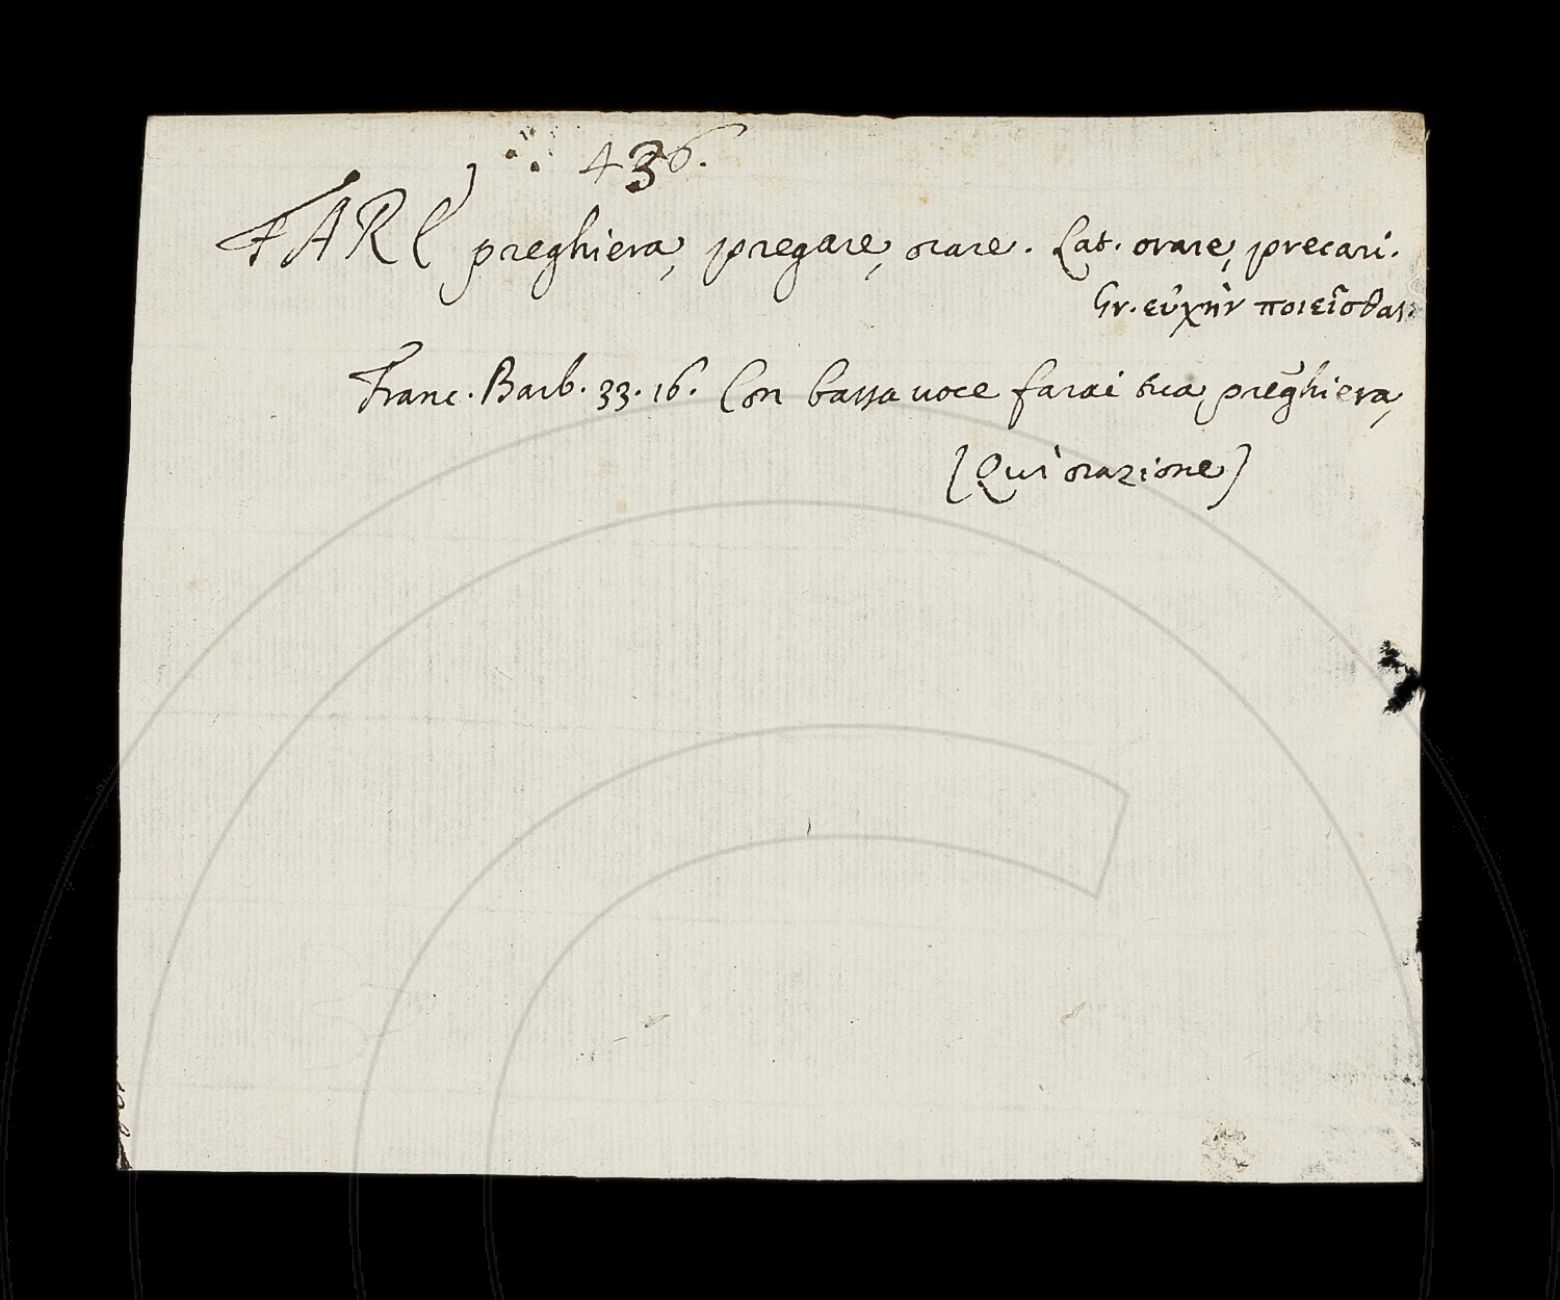 436.
FARE preghiera, pregare, orare. Lat. orare, precari.
Gr. εὐχὴν ποιεῖσθαι.
Franc. Barb. 33. 16. Con bassa uoce farai tua preghiera,
(Quì orazione)